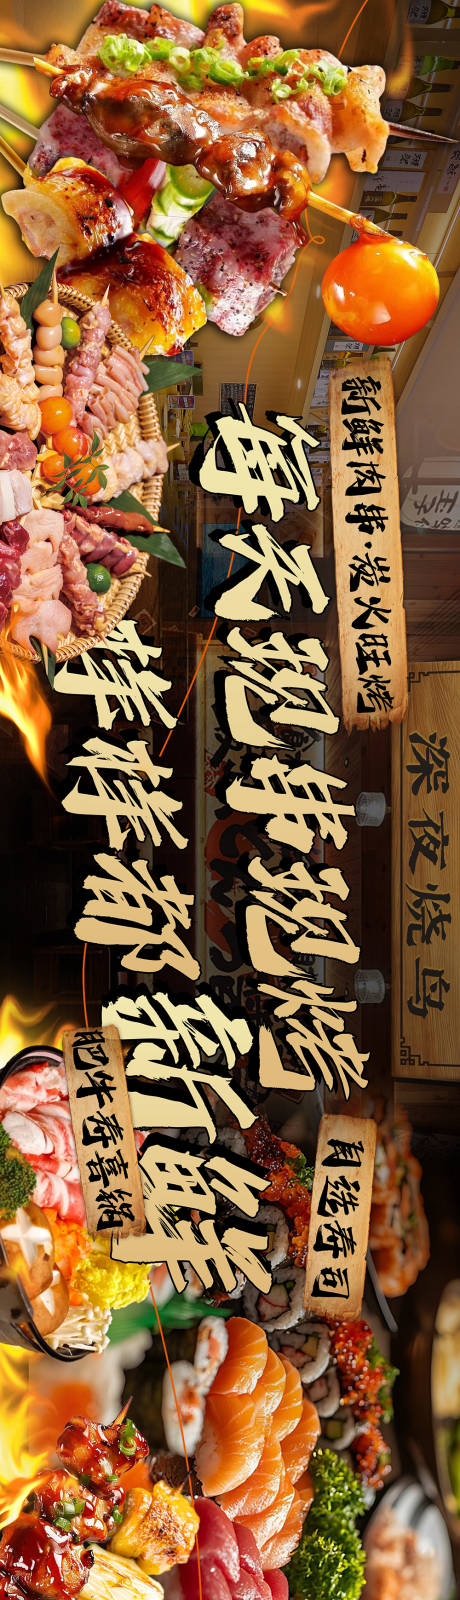 新鲜肉串·炭火旺烤
每天现串现烤
样样都新鲜
深夜烧鸟
自选寿司
肥牛寿喜锅